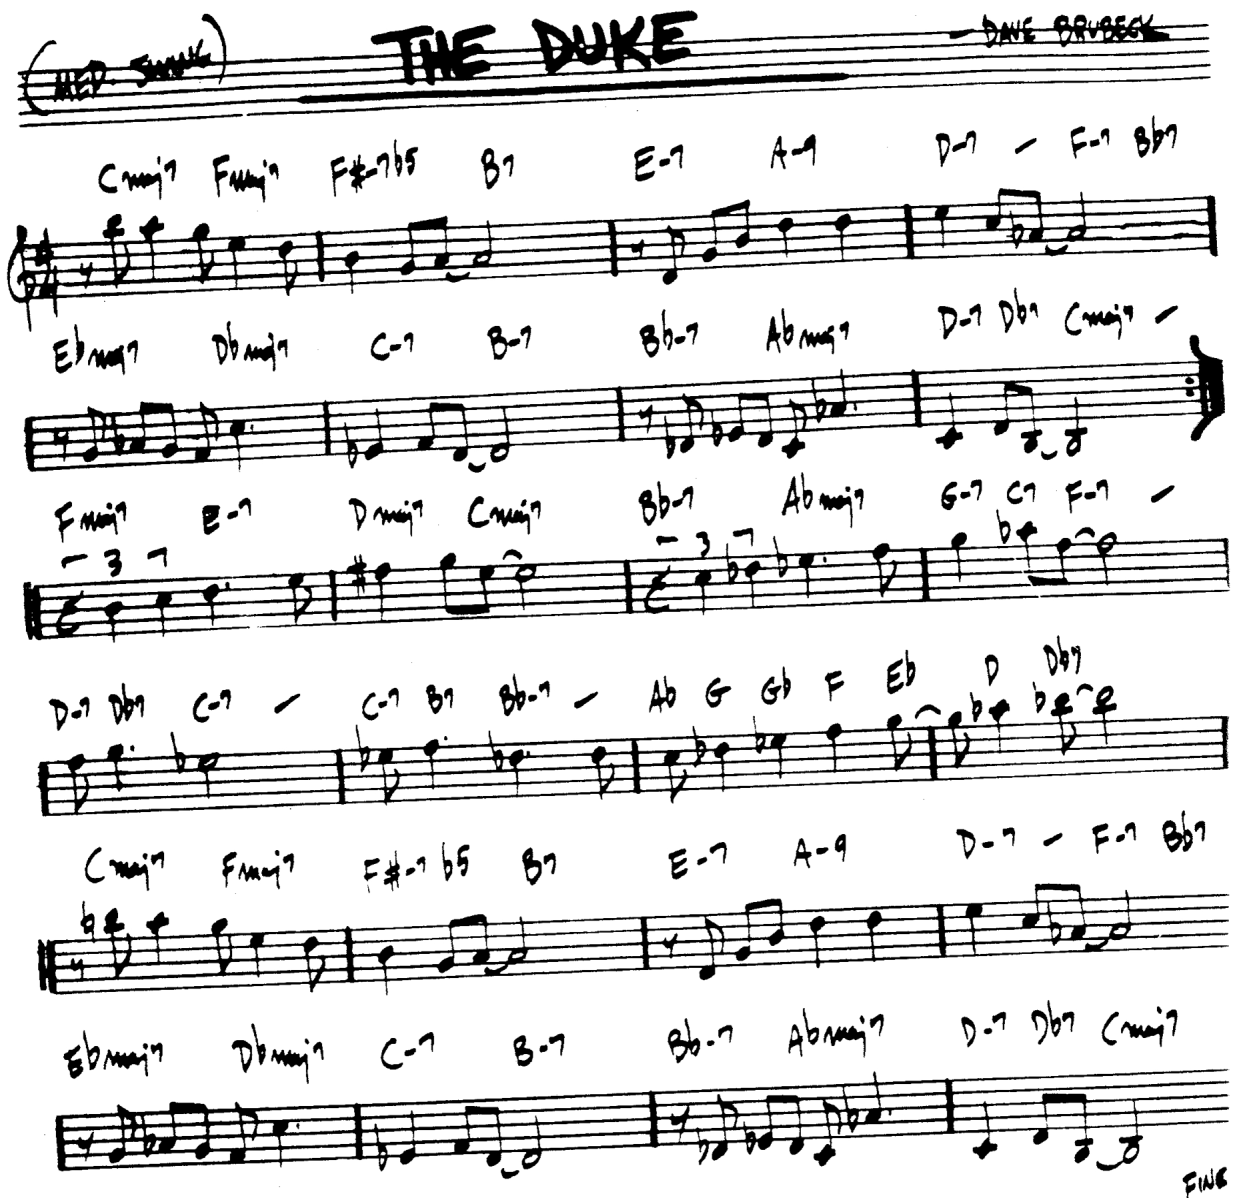 (MED. SWING) THE DUKE - DAVE BRUBECK
Cmaj7 Fmaj7 F#-7b5 B7 E-7 A-9 D-7 - F-7 Bb7
4 4
Ebmaj7 Dbmaj7 C-7 B-7 Bb-7 Abmaj7 D-7 Db7 Cmaj7 -
Fmaj7 E-7 Dmaj7 Cmaj7 Bb-7 Abmaj7 G-7 C7 F-7 -
3 3
D-7 Db7 C-7 - C-7 B7 Bb-7 - Ab G Gb F Eb D Db7
Cmaj7 Fmaj7 F#-7b5 B7 E-7 A-9 D-7 - F-7 Bb7
Ebmaj7 Dbmaj7 C-7 B-7 Bb-7 Abmaj7 D-7 Db7 Cmaj7
FINE